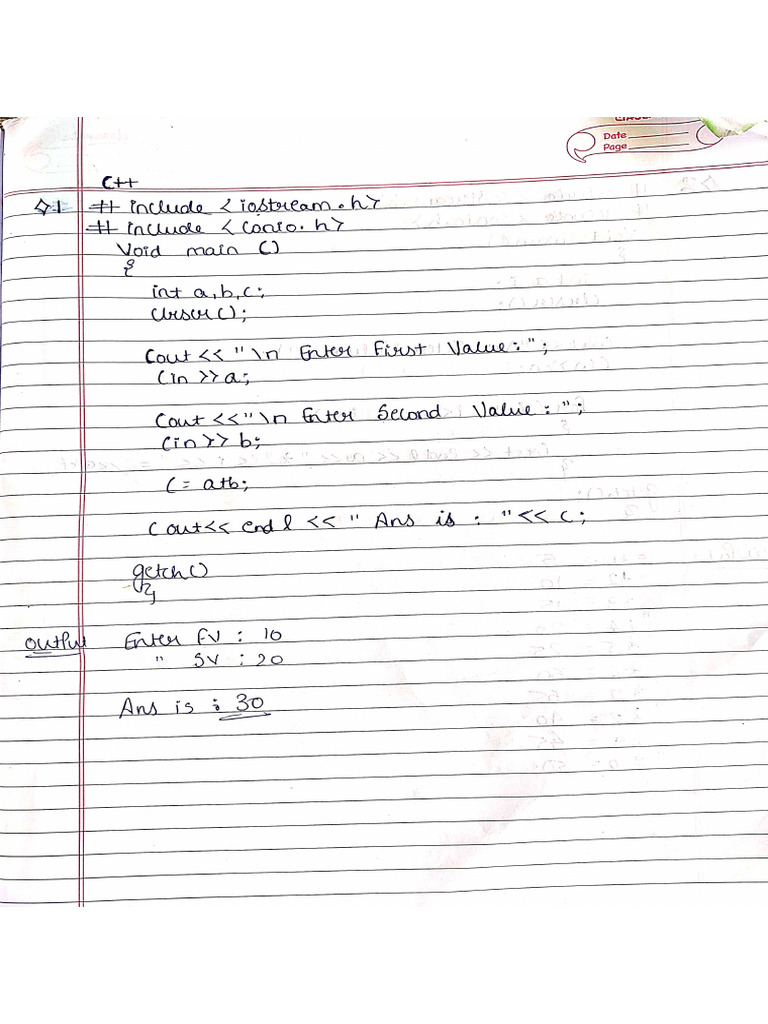 Date
Page
C++
Q1 # include <iostream.h>
# include <conio.h>
Void main ()
{
int a,b,c;
clrscr();
Cout << "\n Enter First Value:";
Cin >> a;
Cout <<"\n Enter Second Value : ";
Cin >> b;
C = a+b;
Cout<< endl << " Ans is : "<< c;
getch()
}
Output Enter FV : 10
" SV : 20
Ans is : 30